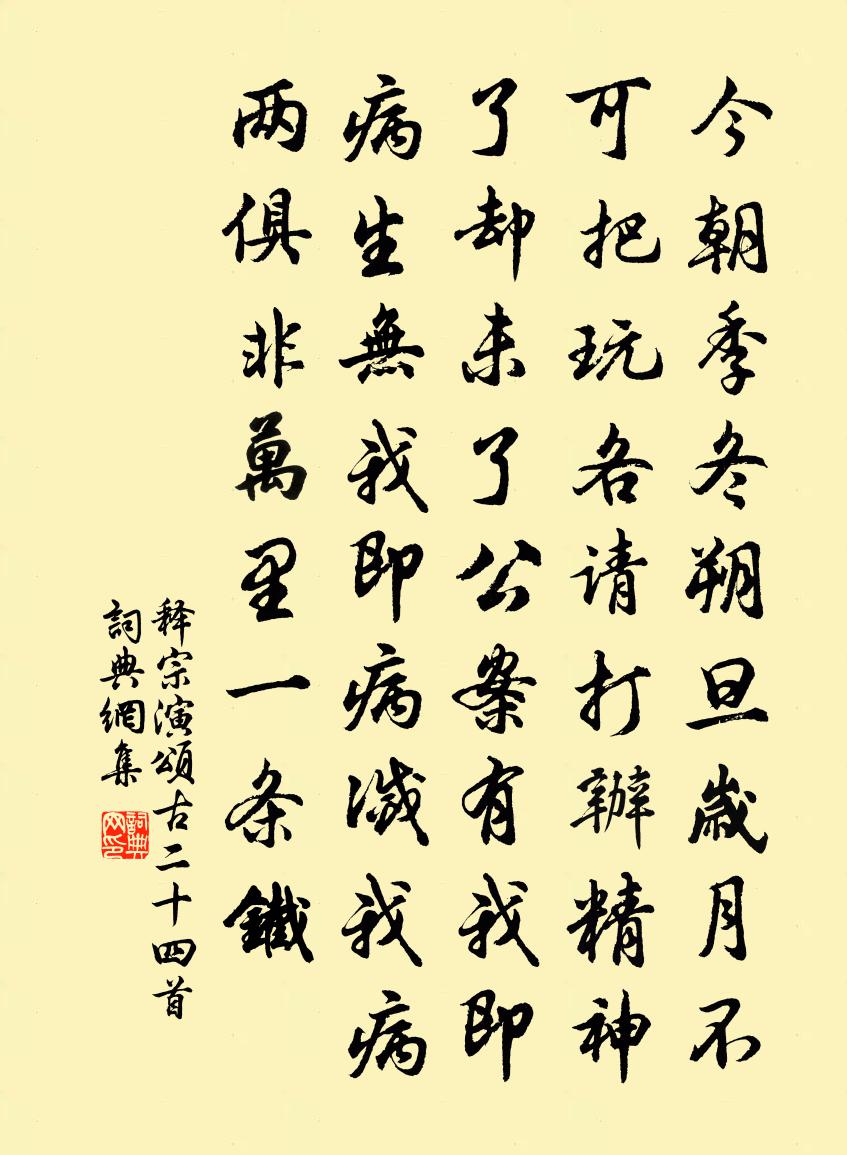 今朝季冬朔旦歲月不
可把玩各请打辦精神
了却未了公案有我即
病生無我即病滅我病
两俱非萬里一条鐵
释宗演頌古二十四首
詞典網集
詞典
网印